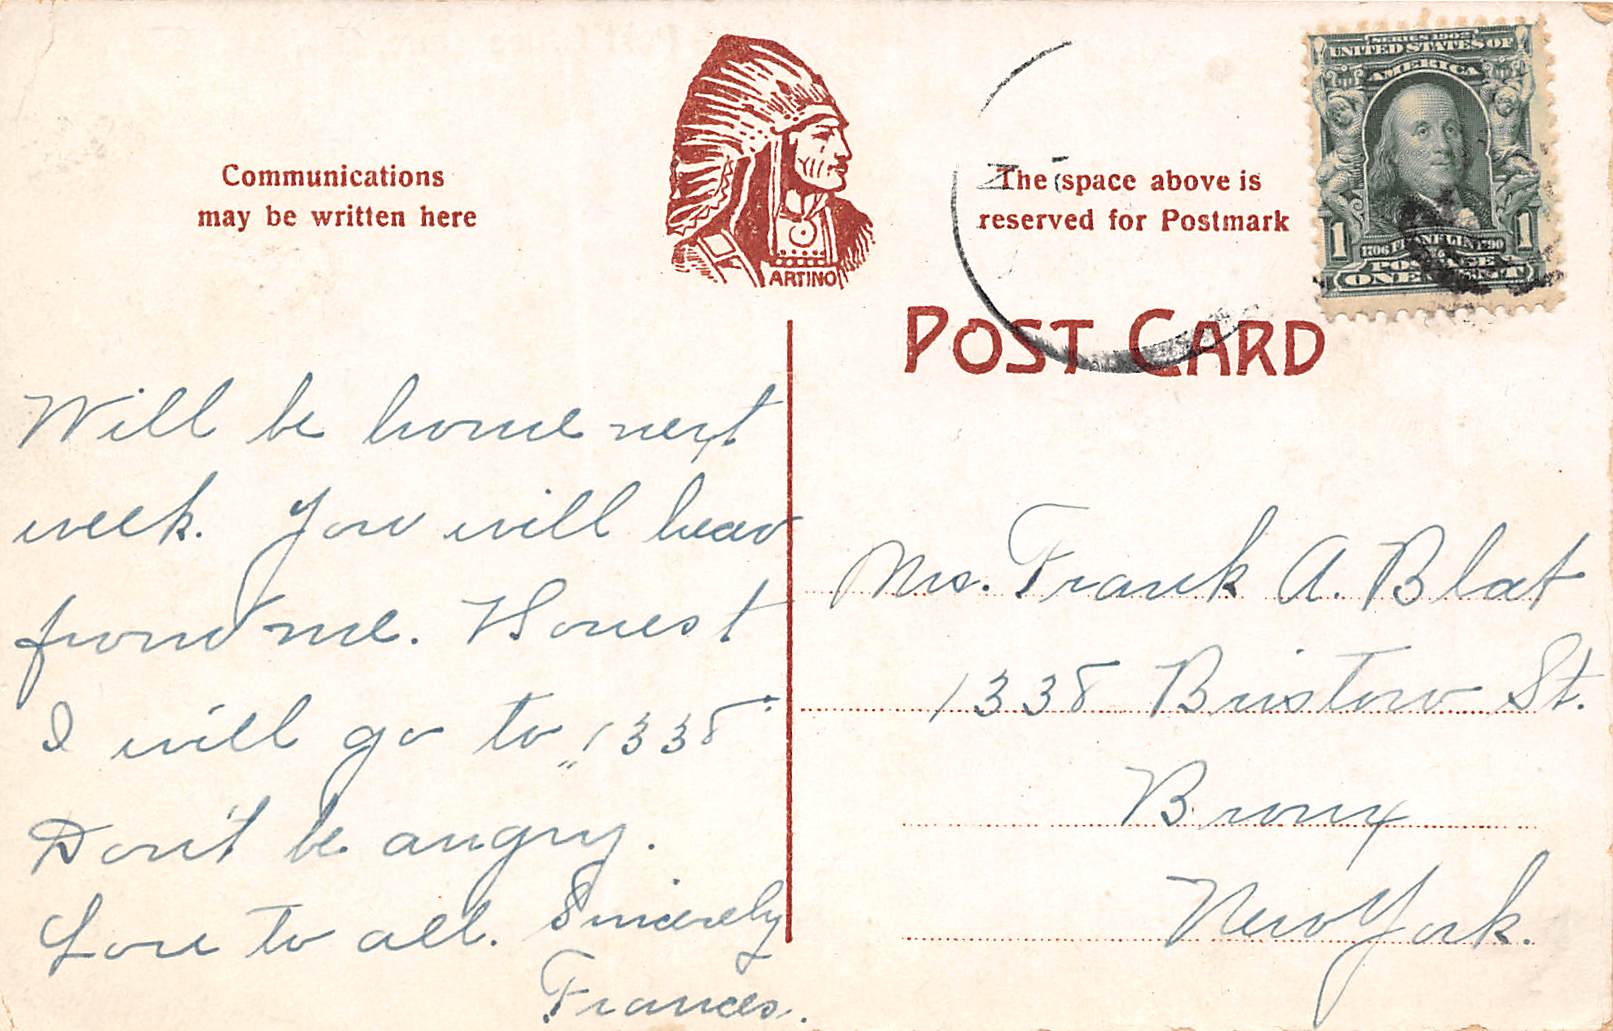 Communications
may be written here
ARTINO
The space above is
reserved for Postmark
SERIES 1902
UNITED STATES OF
AMERICA
1 1706 FRANKLIN 1790 1
POSTAGE
ONE CENT
POST CARD
Will be home next
week. You will hear
from me. Honest
I will go to "1338"
Don't be angry.
Love to all. Sincerely
Frances.
Mrs. Frank A. Blat
1338 Bristow St.
Bronx
New York.